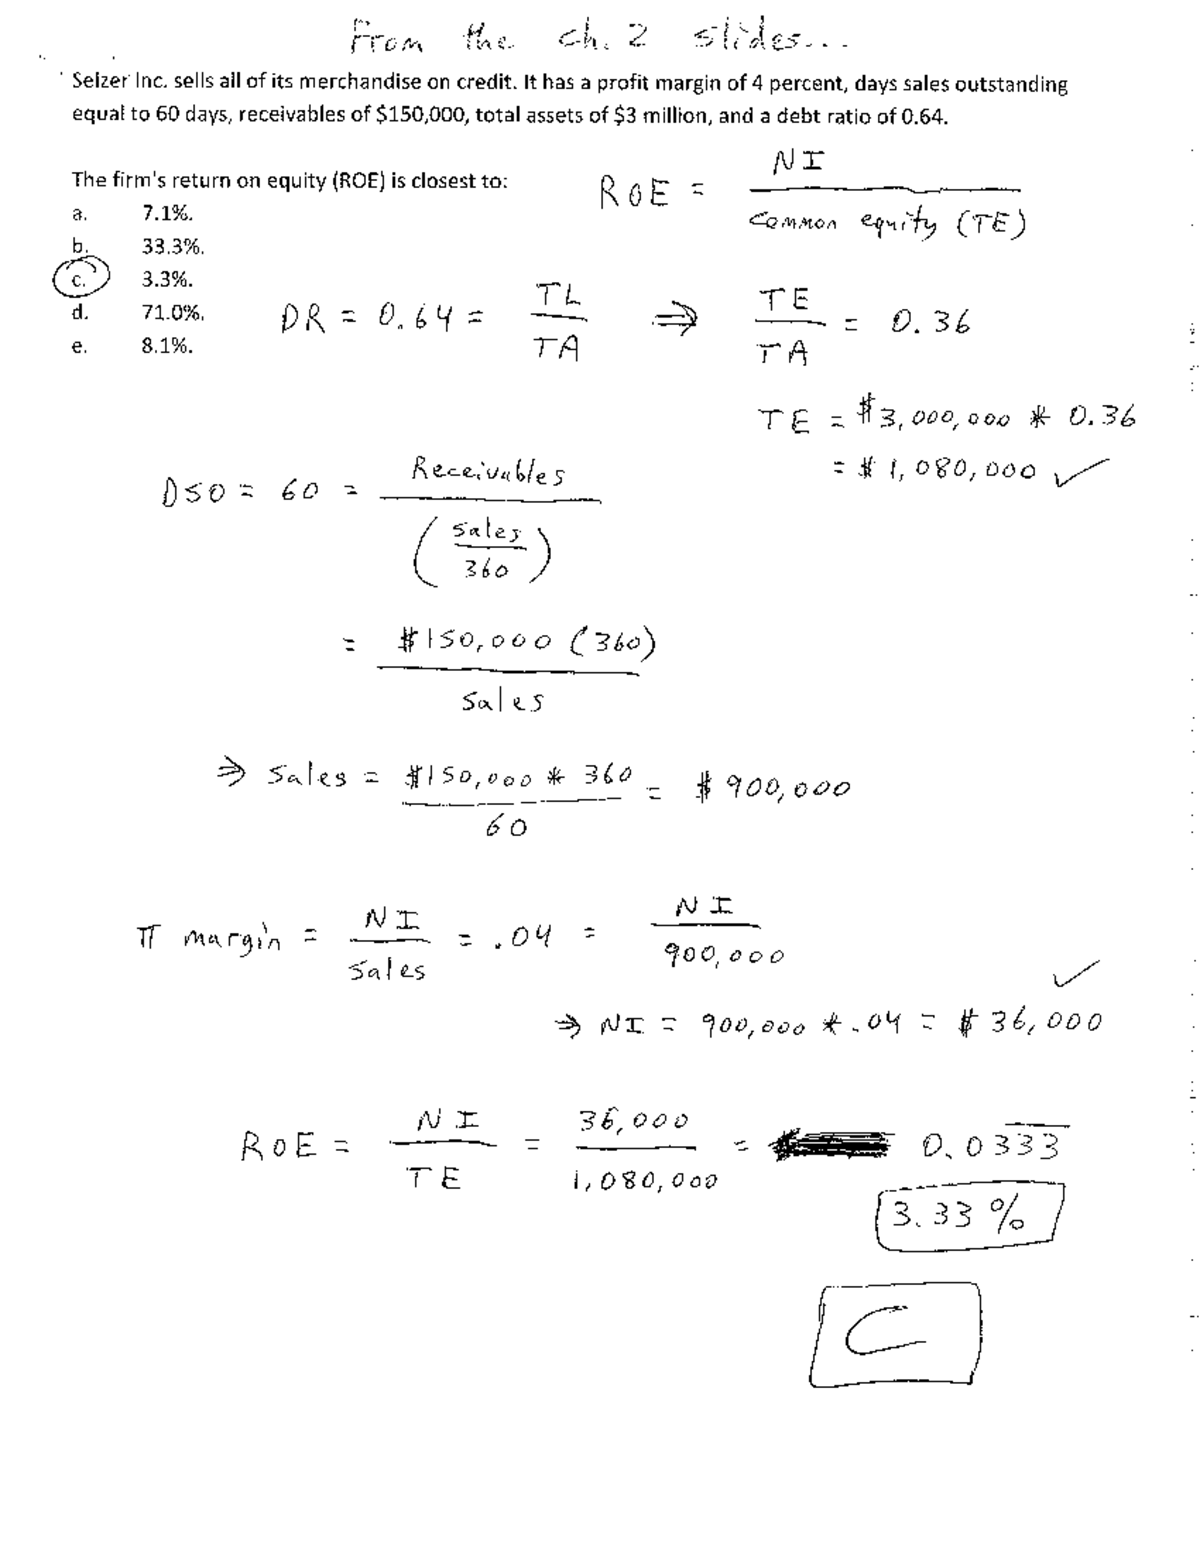 From the ch. 2 slides...
Selzer Inc. sells all of its merchandise on credit. It has a profit margin of 4 percent, days sales outstanding
equal to 60 days, receivables of $150,000, total assets of $3 million, and a debt ratio of 0.64.
The firm's return on equity (ROE) is closest to:
a. 7.1%.
b. 33.3%.
c. 3.3%.
d. 71.0%.
e. 8.1%.
ROE = NI
common equity (TE)
DR = 0.64 = TL
TA
⇒ TE
TA
= 0.36
TE = $3,000,000 * 0.36
= $1,080,000 ✓
DSO = 60 = Receivables
(sales
360)
= $150,000 (360)
sales
⇒ sales = $150,000 * 360
60
= $900,000
π margin = NI
sales
= .04 = NI
900,000
⇒ NI = 900,000 * .04 = $36,000 ✓
ROE = NI
TE
= 36,000
1,080,000
= 0.0333
3.33%
C